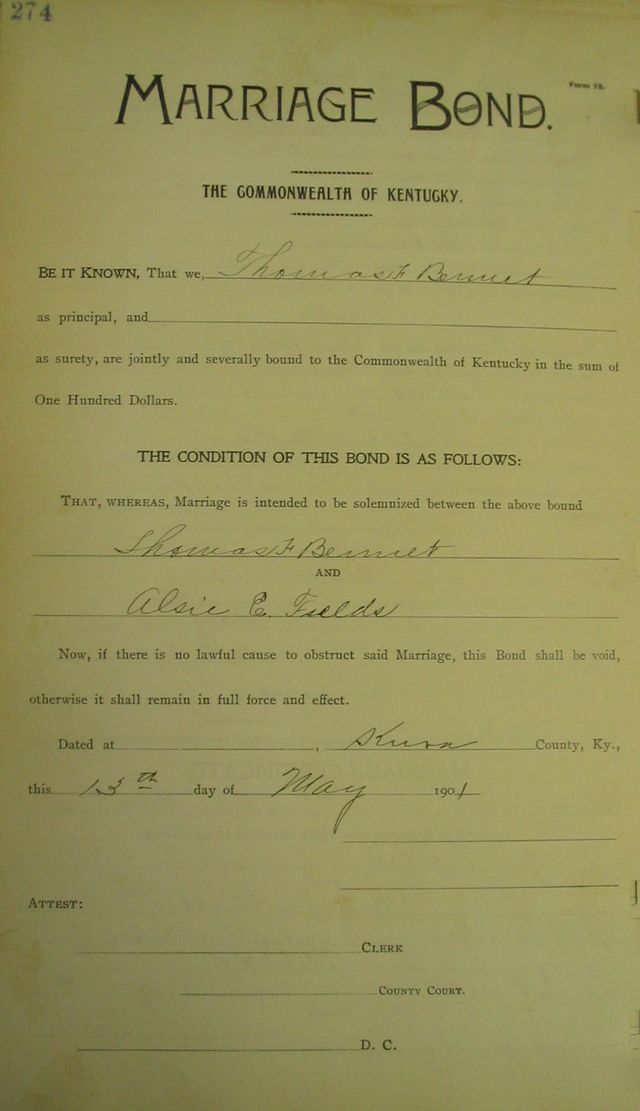 274
Form 18.
MARRIAGE BOND.
THE COMMONWEALTH OF KENTUCKY.
BE IT KNOWN, That we, Thomas F Bennet
as principal, and
as surety, are jointly and severally bound to the Commonwealth of Kentucky in the sum of
One Hundred Dollars.
THE CONDITION OF THIS BOND IS AS FOLLOWS:
THAT, WHEREAS, Marriage is intended to be solemnized between the above bound
Thomas F Bennet
AND
Alsie E. Fields
Now, if there is no lawful cause to obstruct said Marriage, this Bond shall be void,
otherwise it shall remain in full force and effect.
Dated at , Knox County, Ky.,
this 13th day of May 1901
ATTEST:
CLERK
COUNTY COURT.
D. C.